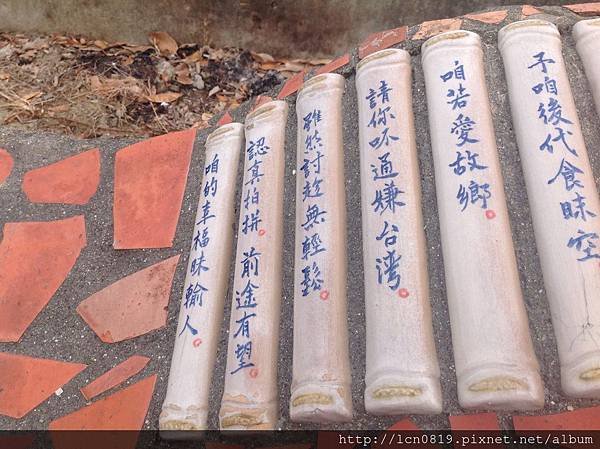 予咱後代食昧空
咱若愛故鄉
請你吥通嫌台灣
雖然討趁無輕鬆
認真拍拼 前途有望
咱的幸福昧輸人
http://lcn0819.pixnet.net/album